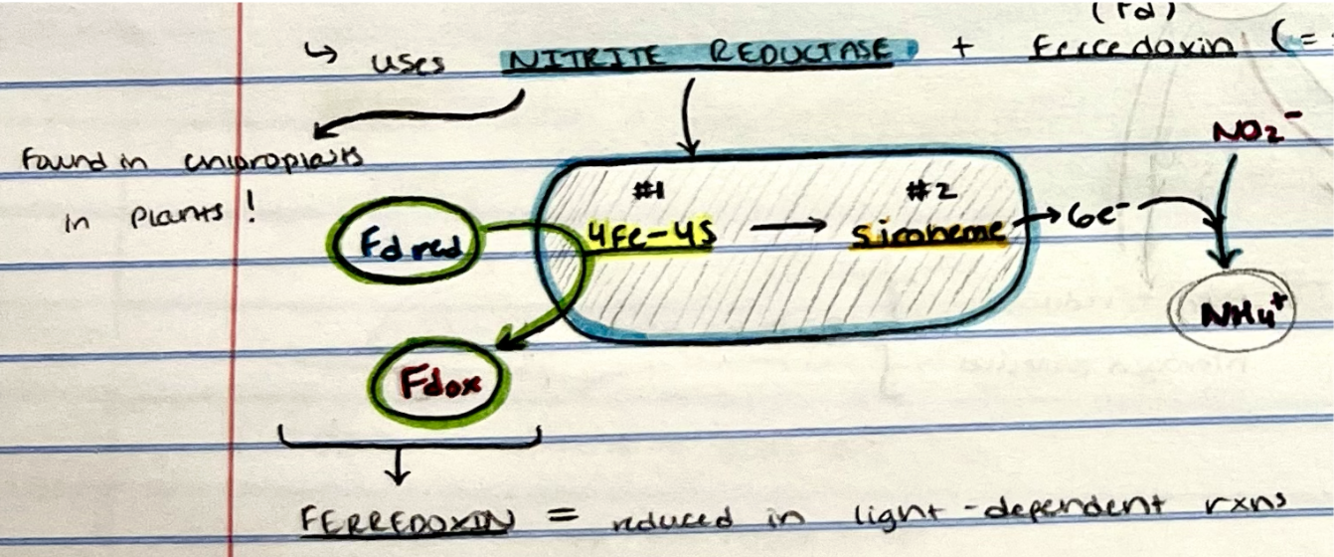 (Fd)
↳ uses NITRITE REDUCTASE + Ferredoxin (=
NO₂⁻
Found in chloroplasts
in plants!
#1 #2
Fd red 4Fe-4S → siroheme → 6e⁻
NH₄⁺
Fdox
FERREDOXIN = reduced in light-dependent rxns